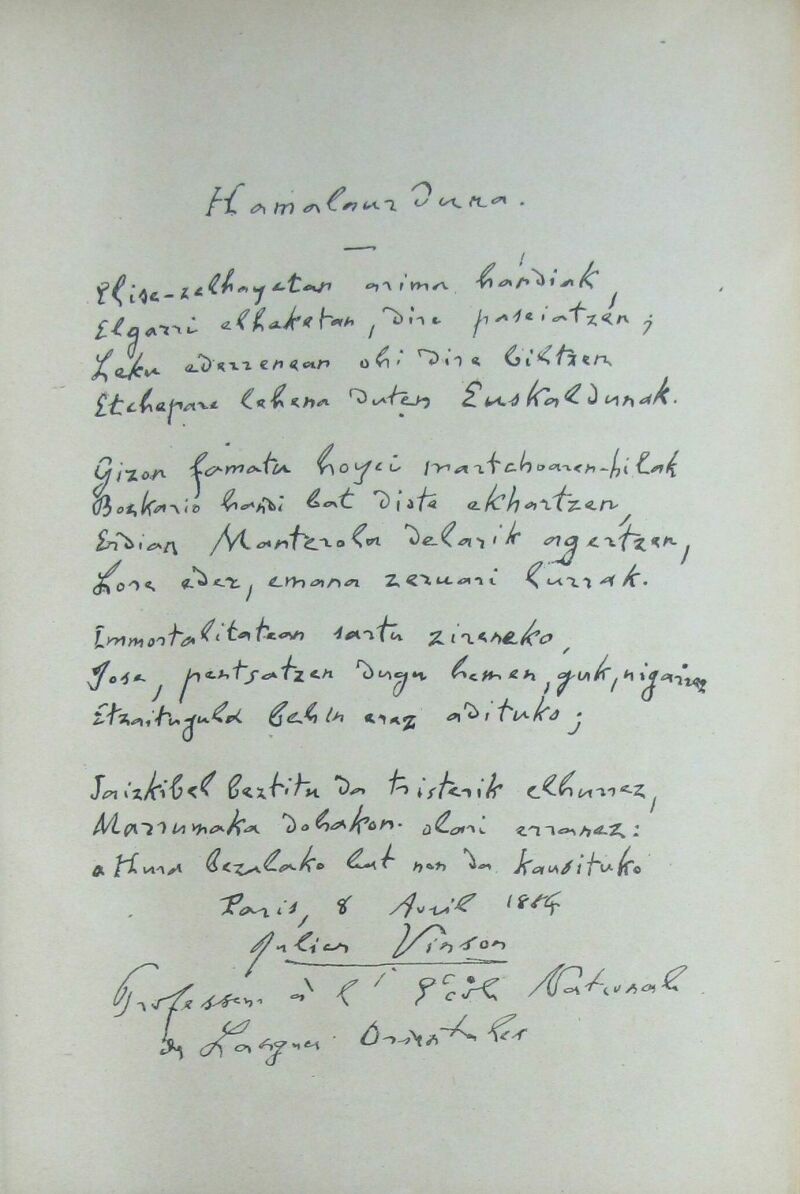 Hamalaur Duna.
Elise-zelhayetan arima handiak,
Elgarri elhaketan, dire paseiatzen;
Leku ederrenean ohi dire biltzen
Etchepare lehena duten Euskaldunak.
Gizon famatu hoyei martchoaren-hilak
Bozkario handi bat diote ekhartzen,
Erdian Manterola delarik agertzen,
Lore eder, emana zeruari lurrak.
Immortalitatean sartu zireneko,
Jose, pentsatzen dugu hemen, guk, nigarrez
Etzaitugula behin ere adituko;
Jaizkibel beztitu da tristerik elhurrez,
Marrumaka dohakon olari erranez:
Hura bezalako bat non da kausituko
Paris, 8 Avril 1884
Julien Vinson
Professeur à l'École Nationale
des Langues Orientales